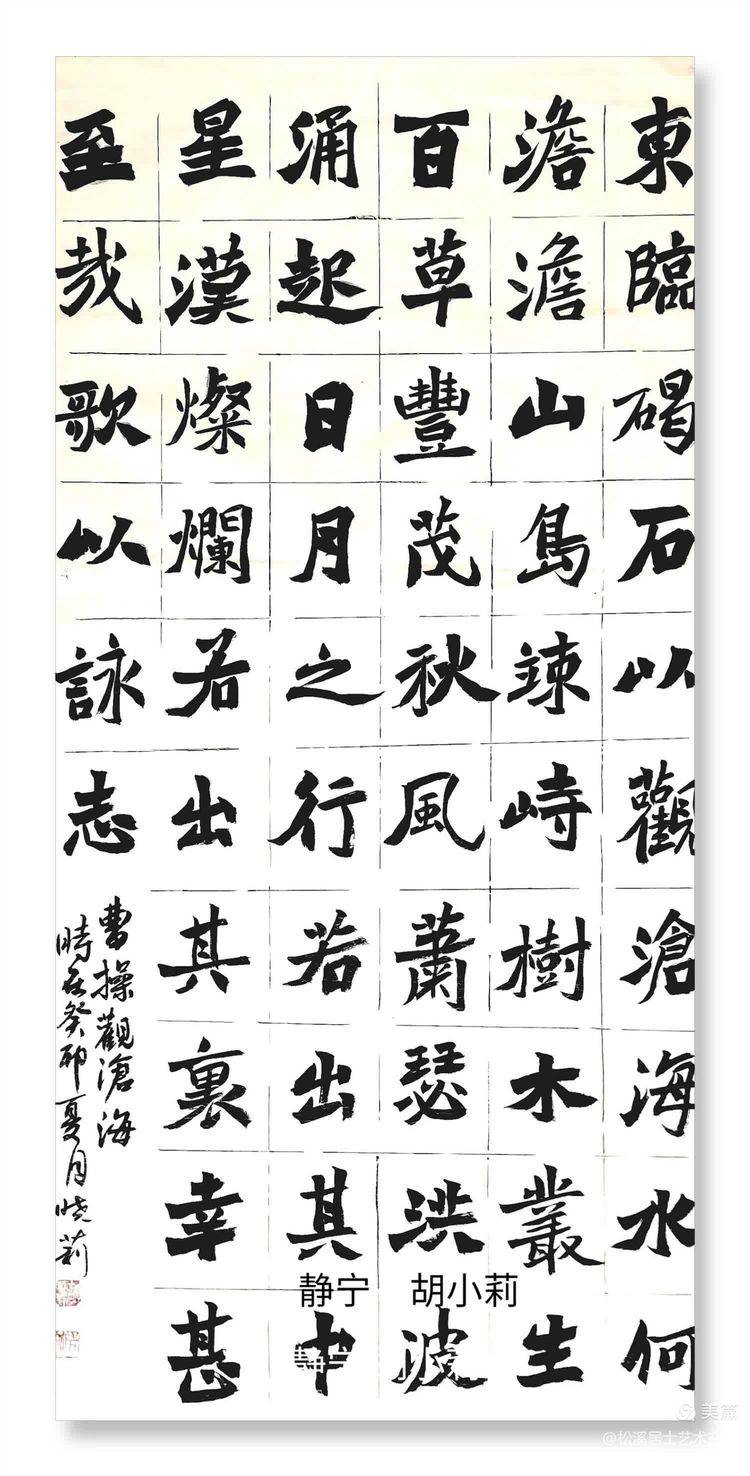 東臨碣石以觀滄海水何
澹澹山島竦峙樹木叢生
百草豐茂秋風蕭瑟洪波
涌起日月之行若出其中
星漢燦爛若出其裏幸甚
至哉歌以詠志
曹操觀滄海
時在癸卯夏月曉莉
静宁 胡小莉
美篇
@松溪居士艺术